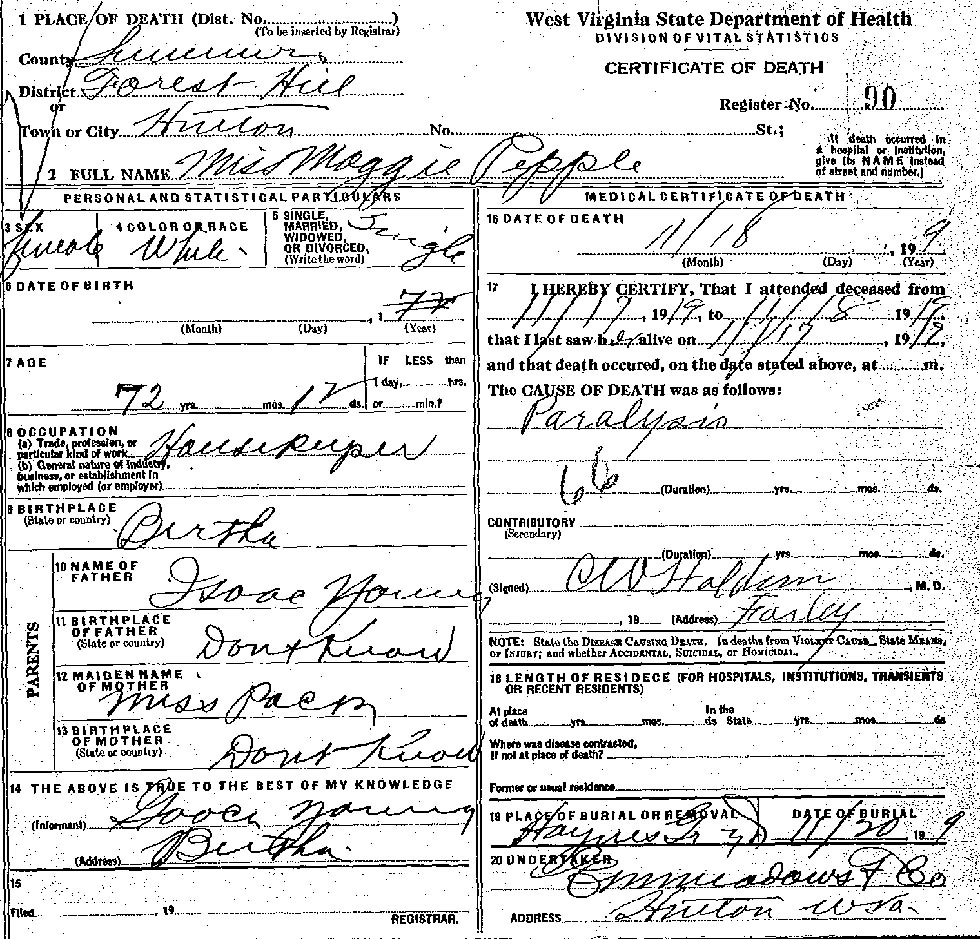 1 PLACE OF DEATH (Dist. No.)
(To be inserted by Registrar)
County Summers
District Forest Hill
or
Town or City Hinton No. St.;
2 FULL NAME Miss Maggie Pepple
West Virginia State Department of Health
DIVISION OF VITAL STATISTICS
CERTIFICATE OF DEATH
Register No. 90
(If death occurred in
a hospital or institution,
give its NAME instead
of street and number.)
PERSONAL AND STATISTICAL PARTICULARS
3 SEX female
4 COLOR OR RACE White
5 SINGLE,
MARRIED,
WIDOWED,
OR DIVORCED,
(Write the word)
Single
6 DATE OF BIRTH
, 1 72
(Month) (Day) (Year)
7 AGE
IF LESS than
1 day, hrs.
72 yrs. mos. 12 ds. or min.?
8 OCCUPATION
(a) Trade, profession, or
particular kind of work Housekeeper
(b) General nature of industry,
business, or establishment in
which employed (or employer)
9 BIRTHPLACE
(State or country) Bertha
PARENTS
10 NAME OF
FATHER Isaac Young
11 BIRTHPLACE
OF FATHER
(State or country) Dont Know
12 MAIDEN NAME
OF MOTHER
Miss Pack
13 BIRTHPLACE
OF MOTHER
(State or country) Dont Know
14 THE ABOVE IS TRUE TO THE BEST OF MY KNOWLEDGE
(Informant) Young
(Address) Bertha
15
Filed , 19
REGISTRAR.
MEDICAL CERTIFICATE OF DEATH
16 DATE OF DEATH
11/18 , 19 9
(Month) (Day) (Year)
17 I HEREBY CERTIFY, That I attended deceased from
11/17, 1919, to 11/18 1919,
that I last saw her alive on 11/17, 1919,
and that death occured, on the date stated above, at m.
The CAUSE OF DEATH was as follows:
Paralysis
66
(Duration) yrs. mos. ds.
CONTRIBUTORY
(Secondary)
(Duration) yrs mos. ds.
(Signed) , M. D.
, 19 (Address) Farley
NOTE: State the DISEASE CAUSING DEATH. In deaths from VIOLENT CAUSE State MEANS,
or INJURY; and whether ACCIDENTAL, SUICIDAL, OR HOMICIDAL.
18 LENGTH OF RESIDECE (FOR HOSPITALS, INSTITUTIONS, TRANSIENTS
OR RECENT RESIDENTS)
At place In the
of death yrs. mos. ds State yrs. mos. ds
Where was disease contracted,
if not at place of death?
Former or usual residence
19 PLACE OF BURIAL OR REMOVAL DATE OF BURIAL
Haynes Gr yd 11/20 19 9
20 UNDERTAKER
Meadows F Co
ADDRESS Hinton W Va.